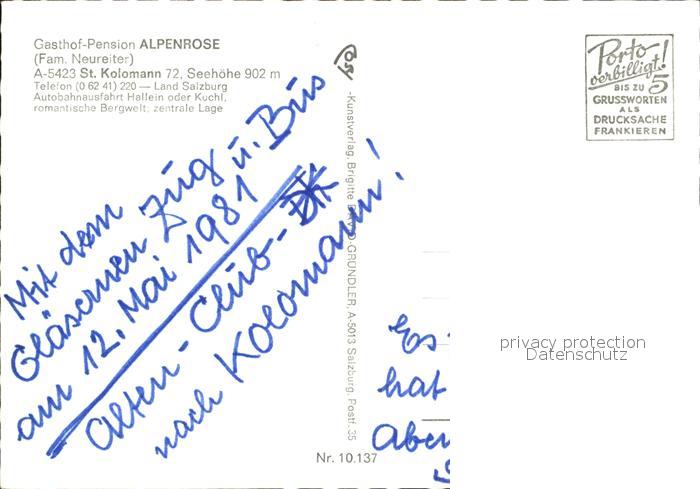 Gasthof-Pension ALPENROSE
(Fam. Neureiter)
A-5423 St. Kolomann 72, Seehöhe 902 m
Telefon (0 62 41) 220 — Land Salzburg
Autobahnausfahrt Hallein oder Kuchl,
romantische Bergwelt; zentrale Lage
Mit dem
Gläsernen Zug u. Bus
am 12. Mai 1981
Alten-Club-
nach Kolomann!
-Kunstverlag, Brigitte GRÜNDLER, A-5013 Salzburg, Postf. 35
Nr. 10.137
Porto
verbilligt!
BIS ZU 5
GRUSSWORTEN
ALS
DRUCKSACHE
FRANKIEREN
Es
hat
Aben
privacy protection
Datenschutz